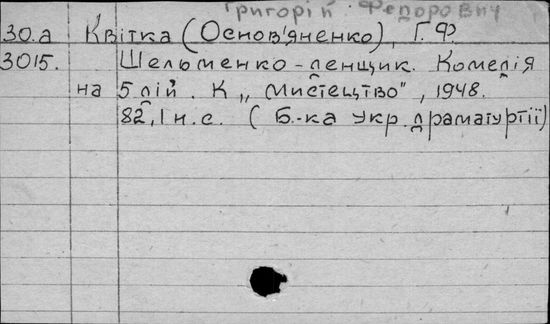 Григорій Федорович
30.а Квітка (Основ'яненко), Г.Ф
3015. Шельменко-денщик. Комедія
на 5 дій. К „Мистецтво", 1948.
82,1 н.с. (Б.-ка укр.драматургії)